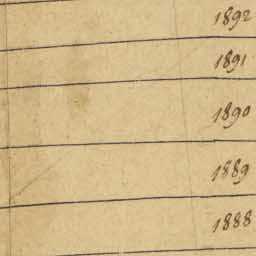 1892
1891
1890
1889
1888